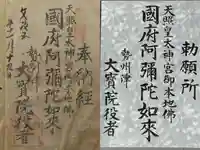 奉納経
天照皇太神宮御本地佛
國府阿彌陀如來
勢州津
大寳院役者
勅願所
天照皇太神宮御本地佛
國府阿彌陀如來
勢州津
大寳院役者